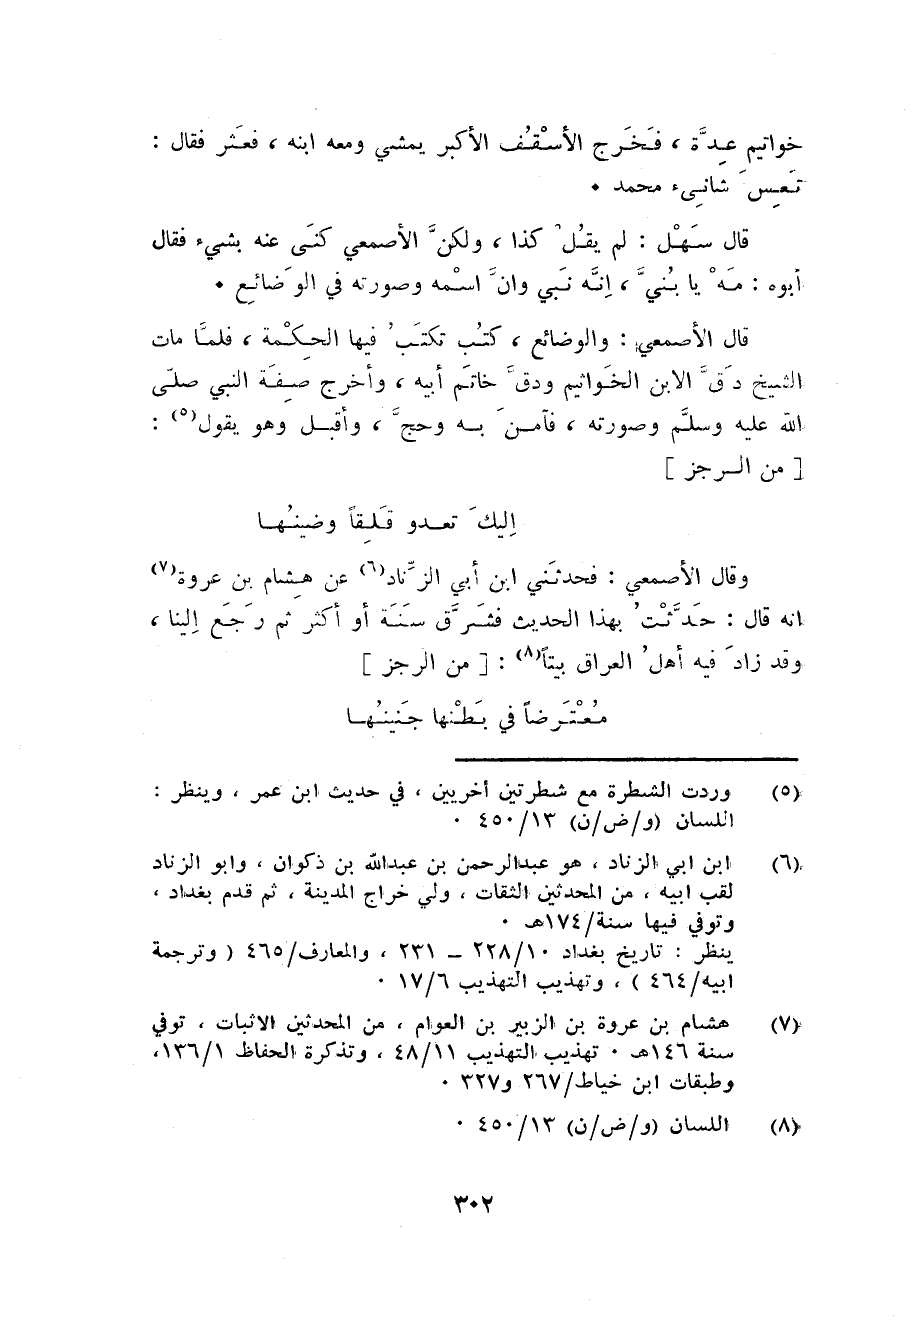 خواتيم عِدَّة ، فَخَرج الأسْقُف الأكبر يمشي ومعه ابنه ، فعَثر فقال :
تَعِسَ شانِىء محمد •
قال سَهْل : لم يقُلْ كذا ، ولكنَّ الأصمعي كنَى عنه بشيء فقال
أبوه : مَهْ يا بُنيَّ ، إنَّه نَبي وانَّ اسْمه وصورته في الوَضائِع •
قال الأصمعي : والوضائع ، كتُب تكتَبُ فيها الحِكْمة ، فلمَّا مات
الشيخ دَقَّ الابن الخَواتيم ودقَّ خاتَم أبيه ، وأخرج صِفَة النبي صلَّى
الله عليه وسلَّم وصورته ، فآمنَ بِه وحجَّ ، وأقبل وهو يقول(٥) :
[ من الرجز ]
إليكَ تعدو قَلِقاً وضينُها
وقال الأصمعي : فحدثَني ابن أبي الزِّناد(٦) عن هِشام بن عروة(٧)
انه قال : حَدَّثْتُ بهذا الحديث فشَرَّق سَنَة أو أكثر ثم رَجَع إلينا ،
وقد زادَ فيه أهلُ العراق بيتاً(٨) : [ من الرجز ]
مُعْتَرضاً في بَطْنها جَنينُها
(٥) وردت الشطرة مع شطرتين أخريين ، في حديث ابن عمر ، وينظر :
اللسان (و/ض/ن) ٤٥٠/١٣ •
(٦) ابن ابي الزناد ، هو عبدالرحمن بن عبدالله بن ذكوان ، وابو الزناد
لقب ابيه ، من المحدثين الثقات ، ولي خراج المدينة ، ثم قدم بغداد ،
وتوفي فيها سنة/١٧٤هـ •
ينظر : تاريخ بغداد ٢٢٨/١٠ ــ ٢٣١ ، والمعارف/٤٦٥ ( وترجمة
ابيه/٤٦٤ ) ، وتهذيب التهذيب ١٧/٦ •
(٧) هشام بن عروة بن الزبير بن العوام ، من المحدثين الاثبات ، توفي
سنة ١٤٦هـ • تهذيب التهذيب ٤٨/١١ ، وتذكرة الحفاظ ١٣٦/١،
وطبقات ابن خياط/٢٦٧ و٣٢٧ •
(٨) اللسان (و/ض/ن) ٤٥٠/١٣ •
٣٠٢